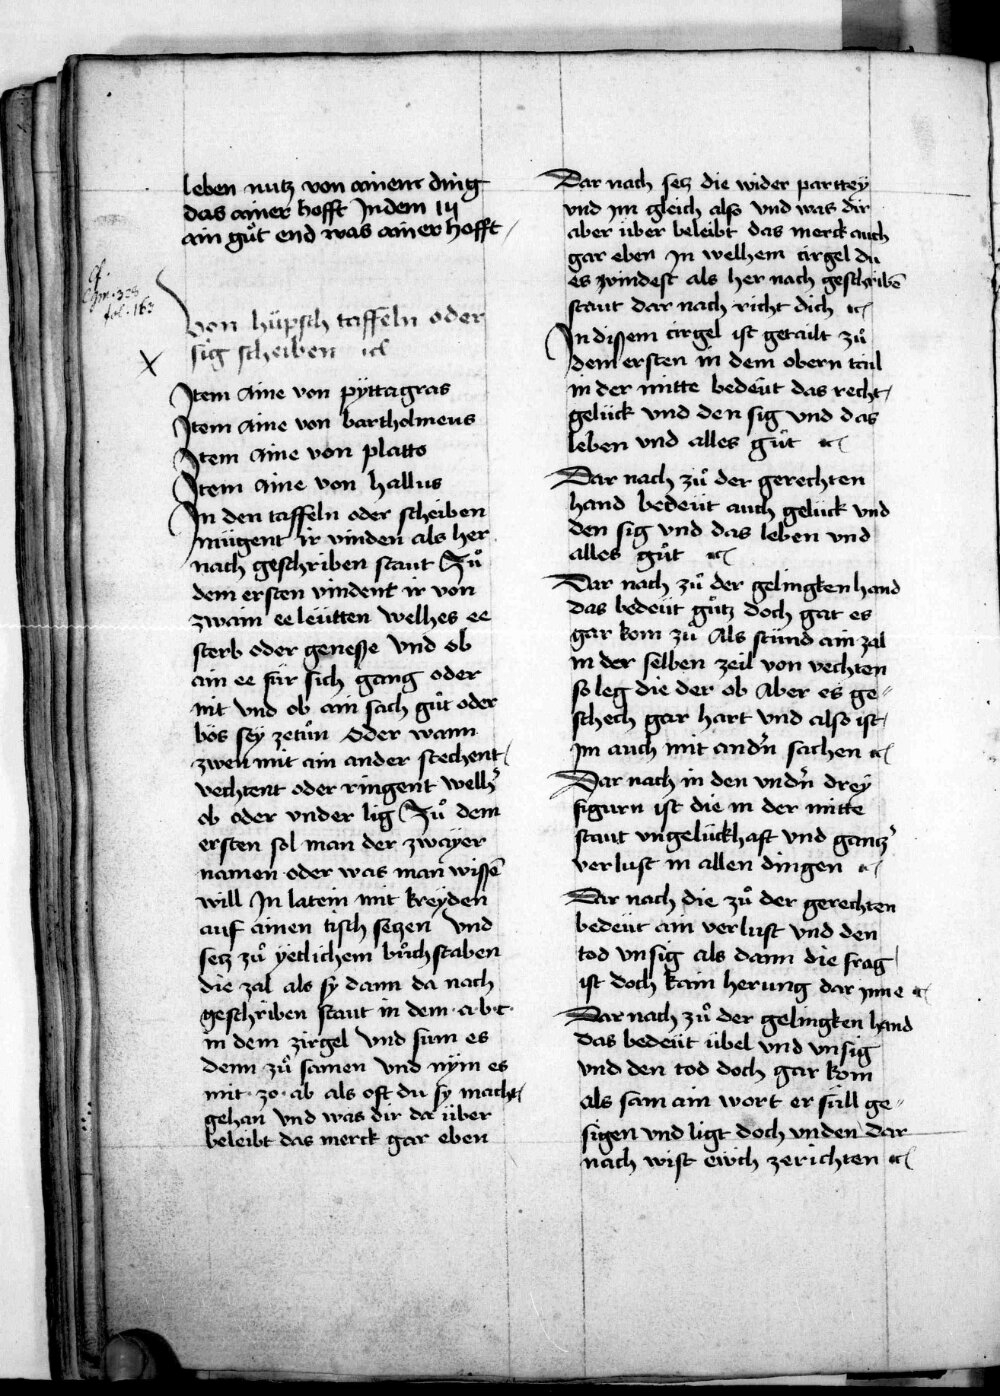 leben nutz von ainem ding
das ainer hofft In dem iij
ain gůt end was ainer hofft
cf.
Cgm. 328
fol. 163
Von hüpsch taffeln oder
sig scheiben ꝛc
x
Item Aine von pÿttagras
Item Aine von bartholmeus
Item Aine von platto
Item Aine von hallus
In den taffeln oder scheiben
mügent ir vinden als her
nach geschriben staut Zů
dem ersten vindent ir von
zwain eeleütten welhes ee
sterb oder genesse Vnd ob
ain ee für sich gang oder
nit Vnd ob ain sach gůt oder
bös seÿ zetůn Oder wann
zwen mit ain ander stechent
vechtent oder ringent welhˀ
ob oder vnder lig Zů dem
ersten sol man der zwaÿer
namen oder was man wissē
will In latein mit kreÿden
auf ainen tisch setzen Vnd
setz zů yetlichem bůchstaben
die zal als sÿ dann da nach
geschriben staut in dem ·a·b·c·
in dem zirgel Vnd sum es
denn zů samen Vnd nÿm es
mit ·30· ab als oft du sÿ macht
gehan Vnd was dir da über
beleibt das merck gar eben
Dar nach setz die wider parttey
vnd jm gleich also Vnd was dir
aber über beleibt das merck auch
gar eben In welhem cirgel du
es vindest als her nach geschribē
staut dar nach richt dich ꝛc
In dissem cirgel ist getailt zů
dem ersten in dem obern tail
in der mitte bedeüt das recht
gelück Vnd den sig Vnd das
leben Vnd alles gůt ꝛc
Dar nach zů der gerechten
hand bedeüt auch gelück Vnd
den sig Vnd das leben Vnd
alles gůt ꝛc
Dar nach zů der gelingken hand
das bedeüt gůtz doch gat es
gar kom zů Als stünd ain zal
in der selben zeil von vechten
so leg die der ob Aber es ge⸗
schech gar hart Vnd also ist
jm auch mit andn̄ sachen ꝛc
Dar nach in den vndn̄ dreÿ
figurn ist die in der mitte
staut vngelückhaft Vnd gantzˀ
verlust in allen dingen ꝛc
Dar nach die zů der gerechten
bedeüt ain verlust Vnd den
tod vnsig als dann die frag
ist doch kain herung dar jnne ꝛc
Dar nach zů der gelingken hand
das bedeüt übel Vnd vnsig
Vnd den tod doch gar kom
als sam ain wort er süll ge⸗
sigen Vnd ligt doch vnden Dar
nach wist ewch zerichten ꝛc